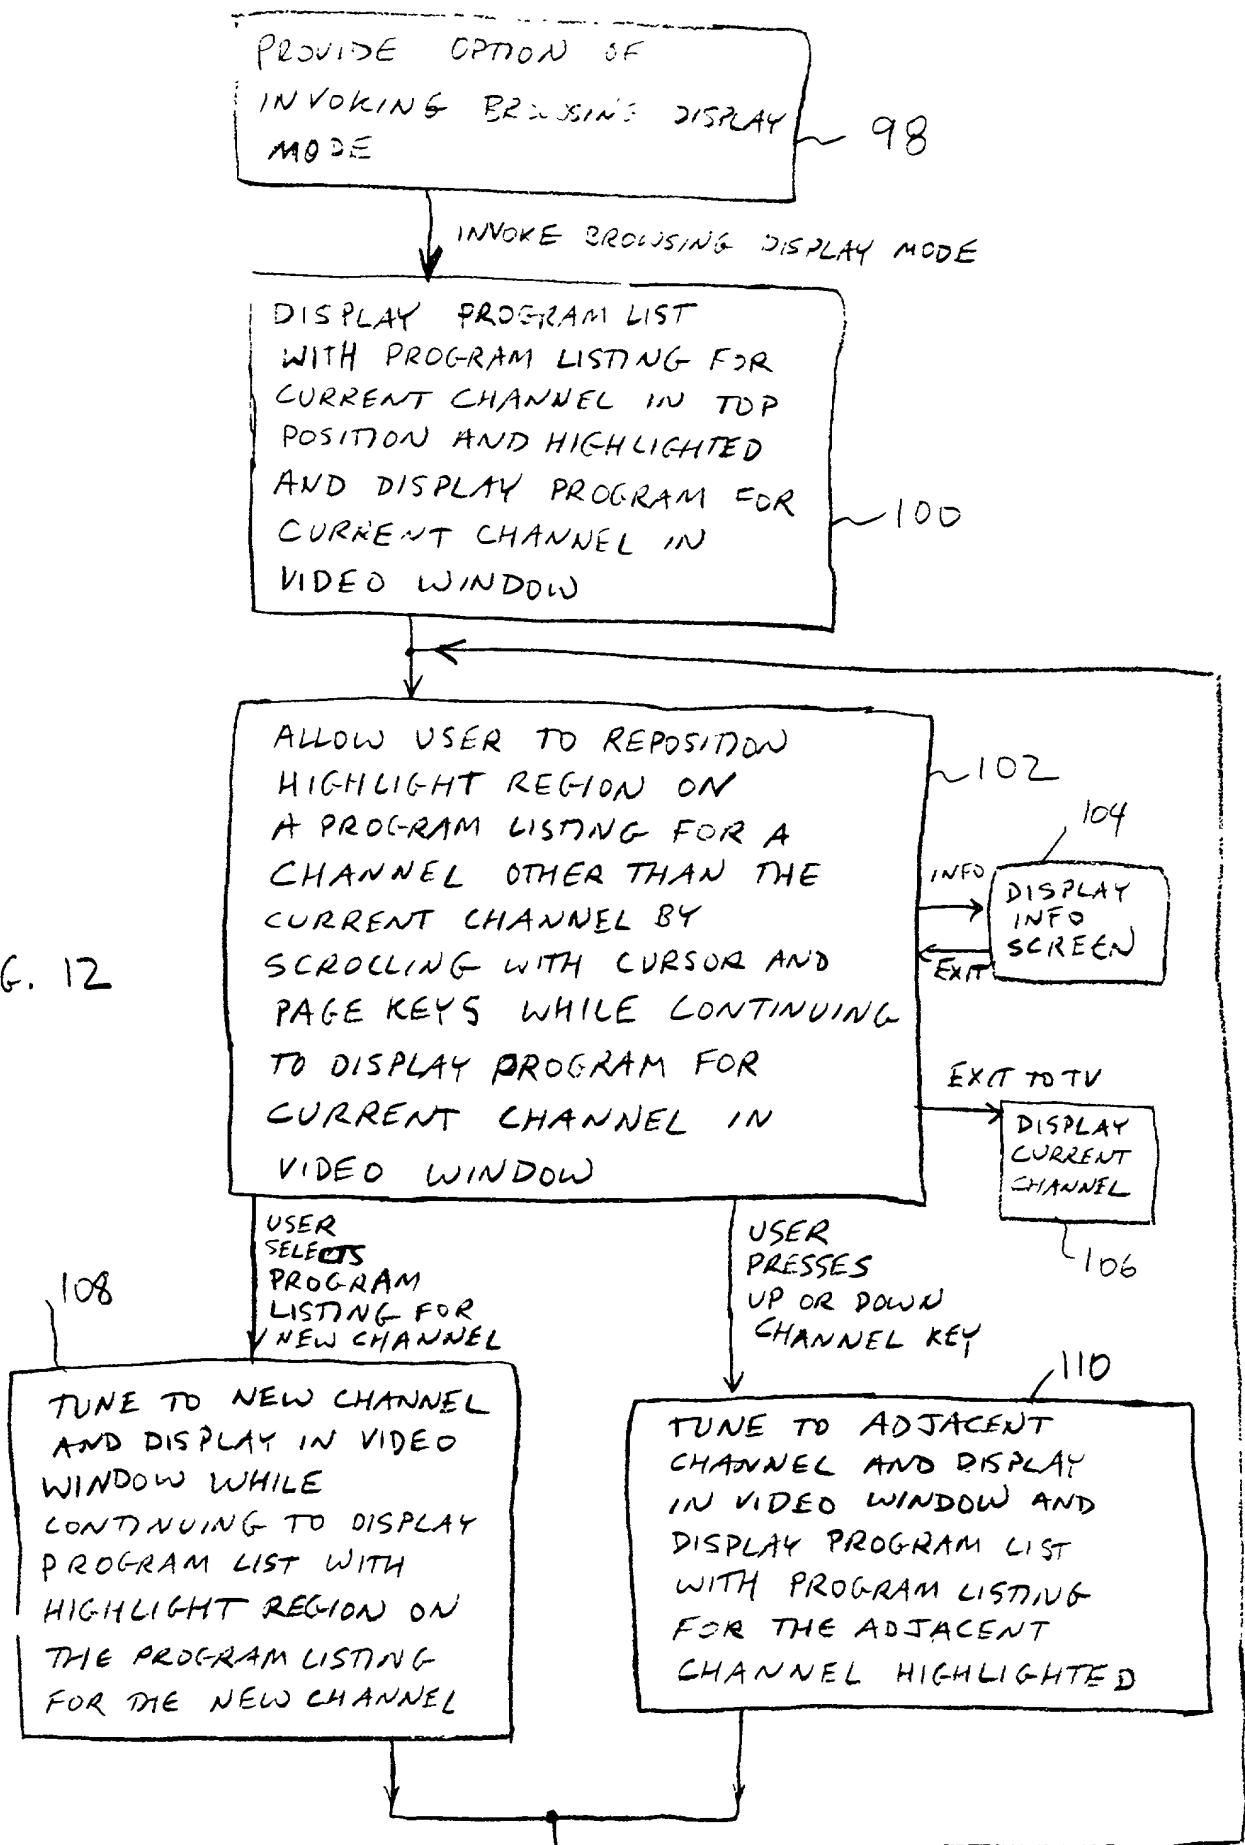 PROVIDE OPTION OF
INVOKING BROWSING DISPLAY
MODE
98
INVOKE BROWSING DISPLAY MODE
DISPLAY PROGRAM LIST
WITH PROGRAM LISTING FOR
CURRENT CHANNEL IN TOP
POSITION AND HIGHLIGHTED
AND DISPLAY PROGRAM FOR
CURRENT CHANNEL IN
VIDEO WINDOW
100
ALLOW USER TO REPOSITION
HIGHLIGHT REGION ON
A PROGRAM LISTING FOR A
CHANNEL OTHER THAN THE
CURRENT CHANNEL BY
SCROLLING WITH CURSOR AND
PAGE KEYS WHILE CONTINUING
TO DISPLAY PROGRAM FOR
CURRENT CHANNEL IN
VIDEO WINDOW
102
104
INFO
DISPLAY
INFO
SCREEN
EXIT
G. 12
EXIT TO TV
DISPLAY
CURRENT
CHANNEL
106
USER
SELECTS
PROGRAM
LISTING FOR
NEW CHANNEL
USER
PRESSES
UP OR DOWN
CHANNEL KEY
108
TUNE TO NEW CHANNEL
AND DISPLAY IN VIDEO
WINDOW WHILE
CONTINUING TO DISPLAY
PROGRAM LIST WITH
HIGHLIGHT REGION ON
THE PROGRAM LISTING
FOR THE NEW CHANNEL
110
TUNE TO ADJACENT
CHANNEL AND DISPLAY
IN VIDEO WINDOW AND
DISPLAY PROGRAM LIST
WITH PROGRAM LISTING
FOR THE ADJACENT
CHANNEL HIGHLIGHTED